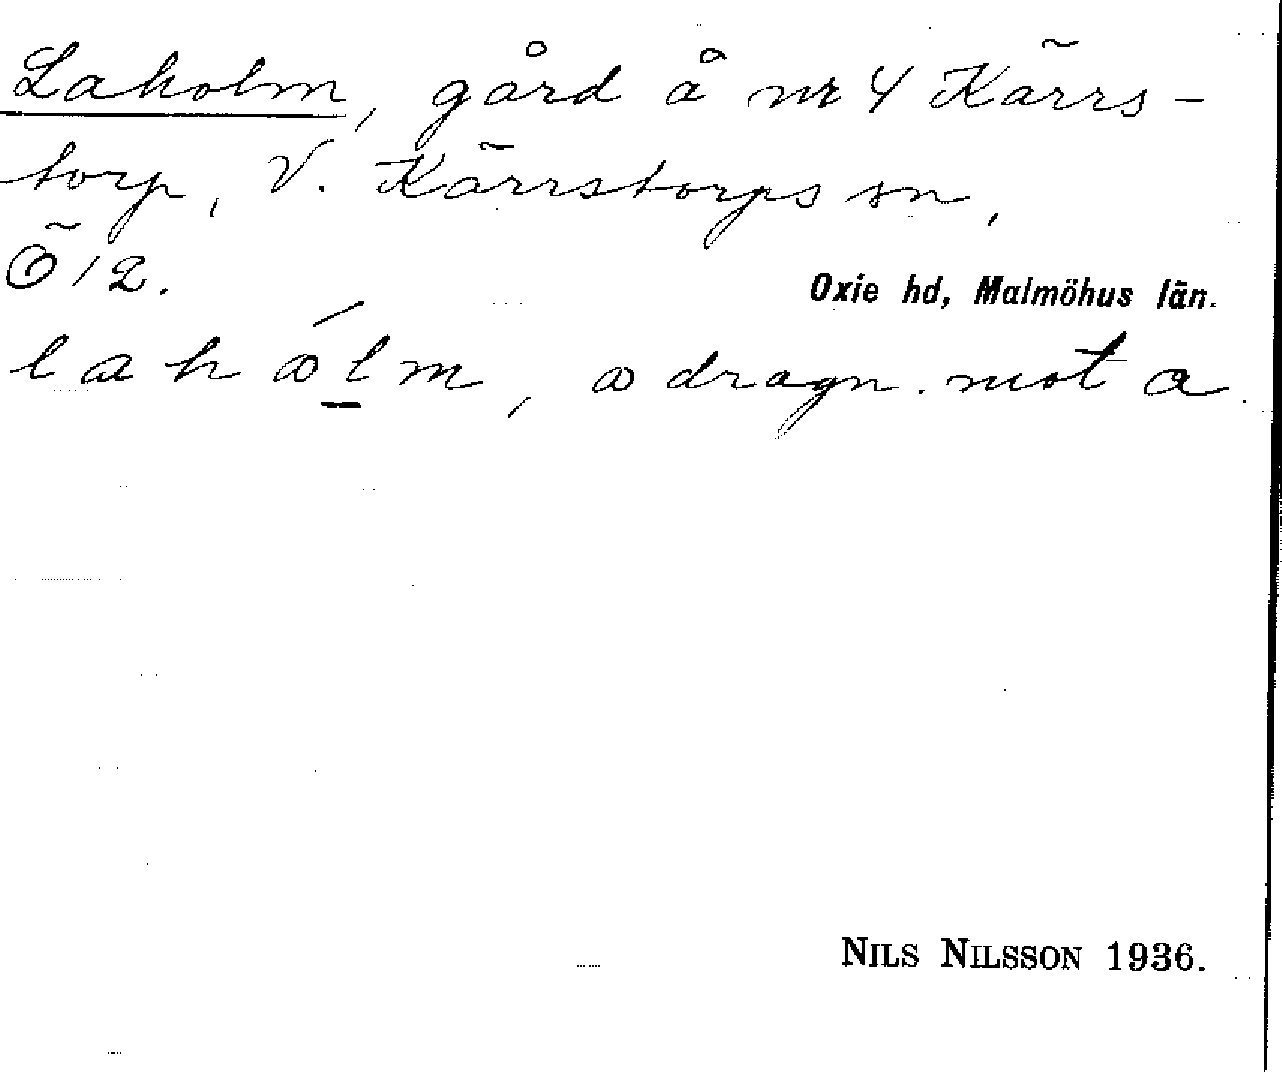 Laholm, gård å nr 4 Kärrs-
torp, V. Kärrstorps sn,
Ö 12.
Oxie hd, Malmöhus län.
lahꝏ́l̠m, ꝏ dragn. mot a.
NILS NILSSON 1936.